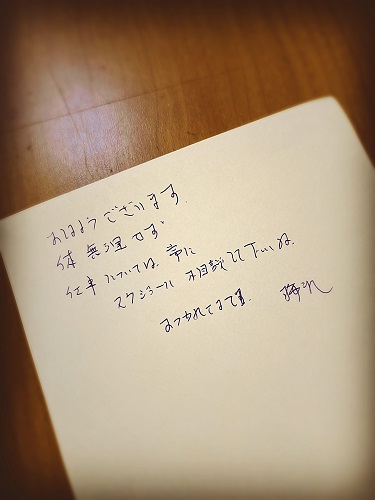 おはようございます。
体 無理せず
仕事については、常に
スケジュール 相談して下さいね。
おつかれさまです。